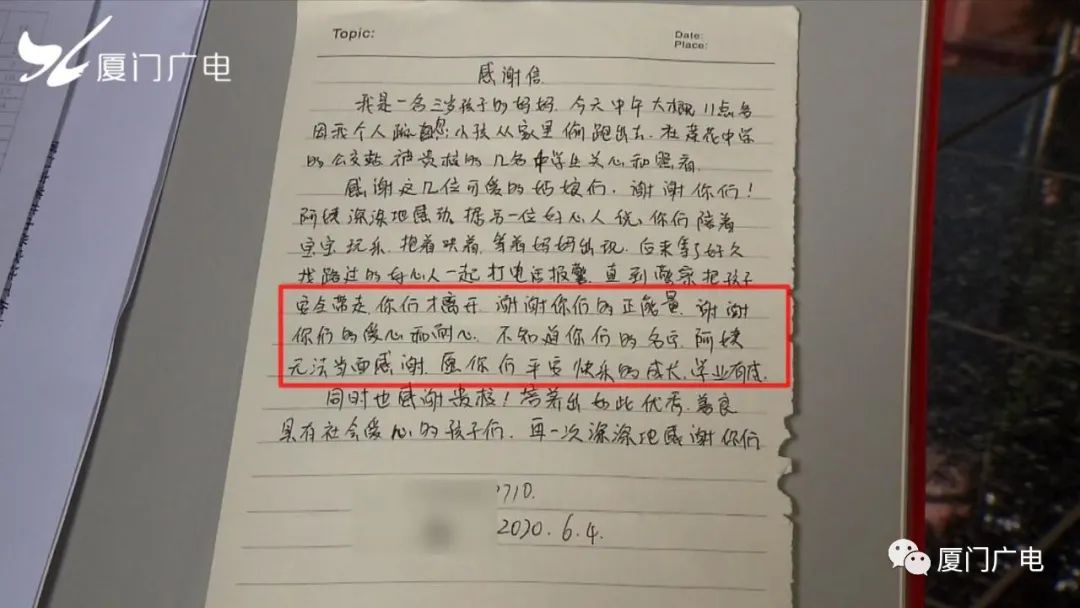 厦门广电
Topic:
Date:
Place:
感谢信
我是一名三岁孩子的妈妈.今天中午大概11点多
因我个人疏忽,小孩从家里偷跑出去.在莲花中学
的公交站被贵校的几名中学生关心和照看.
感谢这几位可爱的姑娘们.谢谢你们!
阿姨深深地感动.据另一位好心人说,你们陪着
宝宝玩乐.抱着哄着.等着妈妈出现.后来等了好久
找路过的好心人一起打电话报警.直到警察把孩子
安全带走.你们才离开.谢谢你们的正能量.谢谢
你们的爱心和耐心.不知道你们的名字.阿姨
无法当面感谢.愿你们平安快乐的成长.学业有成.
同时也感谢贵校!培养出如此优秀.善良
具有社会爱心的孩子们.再一次深深地感谢你们
710.
2020.6.4.
厦门广电